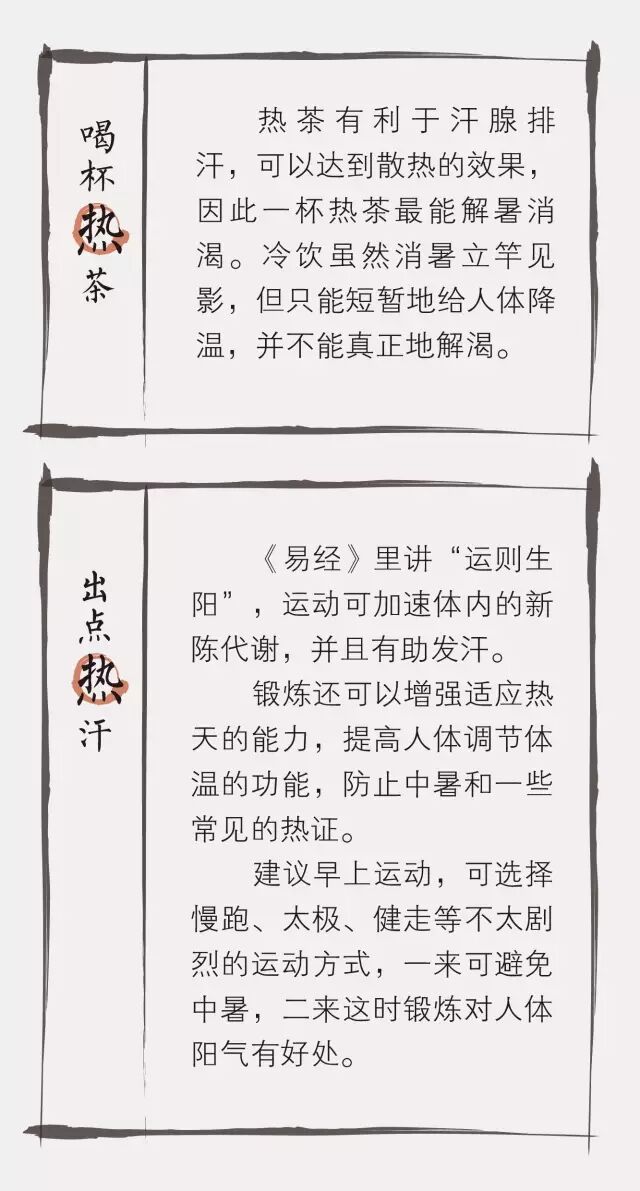 喝杯热茶
热茶有利于汗腺排
汗，可以达到散热的效果，
因此一杯热茶最能解暑消
渴。冷饮虽然消暑立竿见
影，但只能短暂地给人体降
温，并不能真正地解渴。
出点热汗
《易经》里讲“运则生
阳”，运动可加速体内的新
陈代谢，并且有助发汗。
锻炼还可以增强适应热
天的能力，提高人体调节体
温的功能，防止中暑和一些
常见的热证。
建议早上运动，可选择
慢跑、太极、健走等不太剧
烈的运动方式，一来可避免
中暑，二来这时锻炼对人体
阳气有好处。